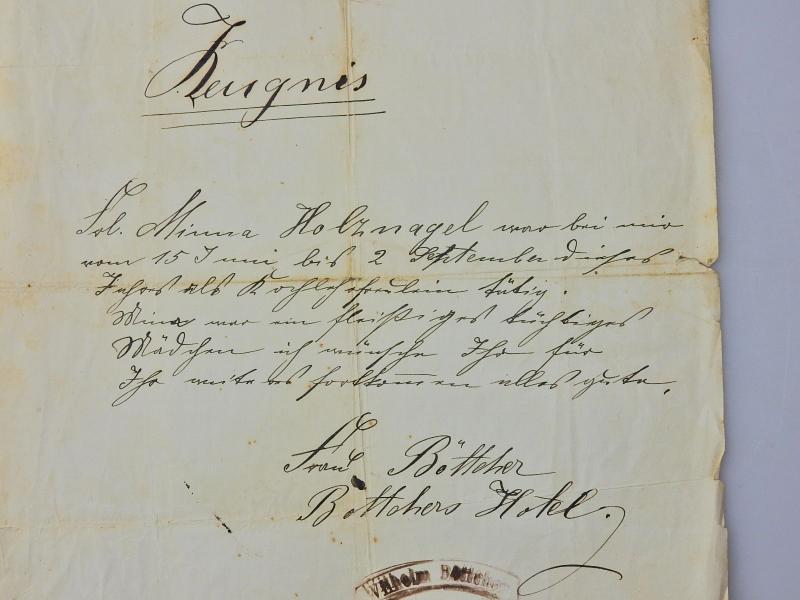 Zeugnis
Frl. Minna Holznagel war bei mir
vom 15 Juni bis 2 September dieses
Jahres als Kochlehrfreulein tätig.
Mina war ein fleißiges tüchtiges
Mädchen ich wünsche Ihr für
Ihr weiteres fortkommen alles gute,
Frau Böttcher
Bottchers Hotel.
Wilhelm Böttcher